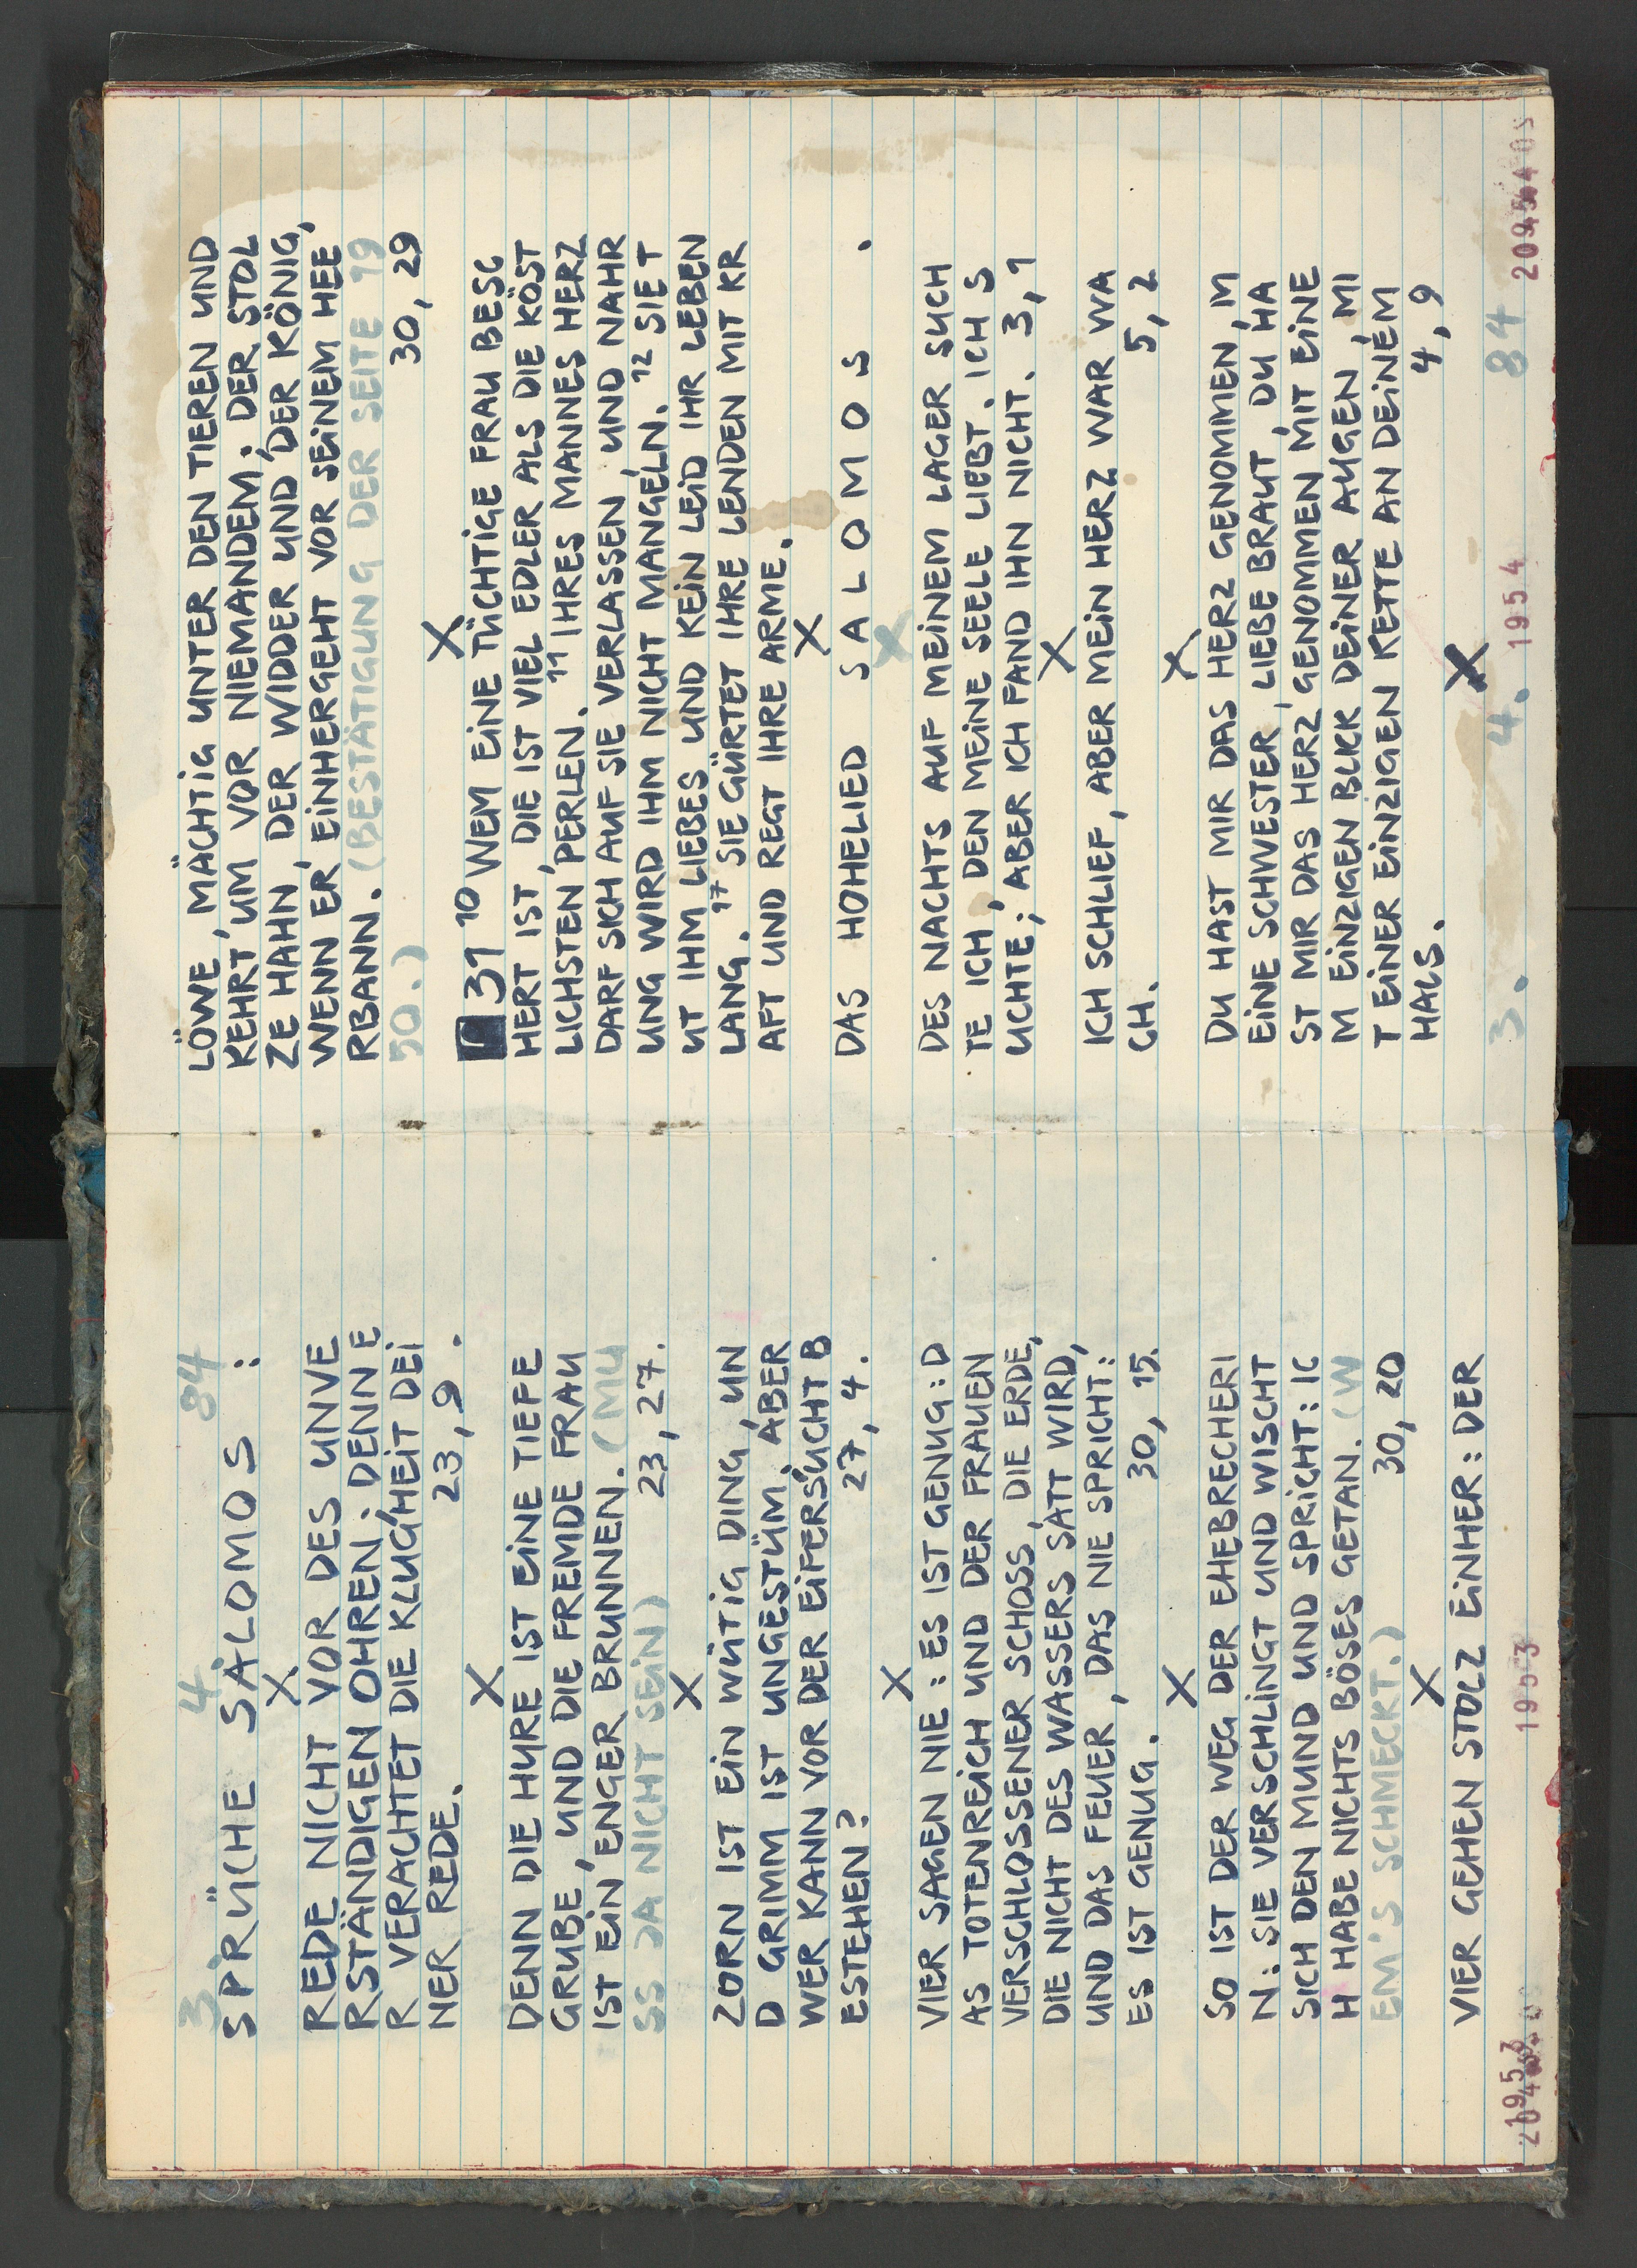 3 4 84
SPRÜCHE SALOMOS :
X
REDE NICHT VOR DES UNVE
RSTÄNDIGEN OHREN; DENN E
R VERACHTET DIE KLUGHEIT DEI
NER REDE. 23,9.
X
DENN DIE HURE IST EINE TIEFE
GRUBE, UND DIE FREMDE FRAU
IST EIN ENGER BRUNNEN. (MU
SS JA NICHT SEIN) 23, 27.
X
ZORN IST EIN WÜTIG DING, UN
D GRIMM IST UNGESTÜM, ABER
WER KANN VOR DER EIFERSUCHT B
ESTEHEN? 27, 4.
X
VIER SAGEN NIE: ES IST GENUG: D
AS TOTENREICH UND DER FRAUEN
VERSCHLOSSENER SCHOSS, DIE ERDE,
DIE NICHT DES WASSERS SATT WIRD,
UND DAS FEUER, DAS NIE SPRICHT:
ES IST GENUG. 30, 15.
X
SO IST DER WEG DER EHEBRECHERI
N: SIE VERSCHLINGT UND WISCHT
SICH DEN MUND UND SPRICHT: IC
H HABE NICHTS BÖSES GETAN. (W
EM'S SCHMECKT.) 30, 20
X
VIER GEHEN STOLZ EINHER: DER
1953
1953
LÖWE, MÄCHTIG UNTER DEN TIEREN UND
KEHRT UM VOR NIEMANDEM; DER STOL
ZE HAHN, DER WIDDER UND DER KÖNIG,
WENN ER EINHERGEHT VOR SEINEM HEE,
RBANN. (BESTÄTIGUNG DER SEITE 19
50.) 30, 29
X
31 10 WEM EINE TÜCHTIGE FRAU BESC
HERT IST, DIE IST VIEL EDLER ALS DIE KÖST
LICHSTEN PERLEN. 11 IHRES MANNES HERZ
DARF SICH AUF SIE VERLASSEN, UND NAHR
UNG WIRD IHM NICHT MANGELN. 12 SIE T
UT IHM LIEBES UND KEIN LEID IHR LEBEN
LANG. 17 SIE GÜRTET IHRE LENDEN MIT KR
AFT UND REGT IHRE ARME.
X
DAS HOHELIED SALOMOS .
X
DES NACHTS AUF MEINEM LAGER SUCH
TE ICH, DEN MEINE SEELE LIEBT. ICH S
UCHTE; ABER ICH FAND IHN NICHT. 3,1
X
ICH SCHLIEF, ABER MEIN HERZ WAR WA
CH. 5, 2
X
DU HAST MIR DAS HERZ GENOMMEN, M
EINE SCHWESTER, LIEBE BRAUT, DU HA
ST MIR DAS HERZ GENOMMEN MIT EINE
M EINZIGEN BLICK DEINER AUGEN, MI
T EINER EINZIGEN KETTE AN DEINEM
HALS. 4, 9
X
3. 4. 84
1954